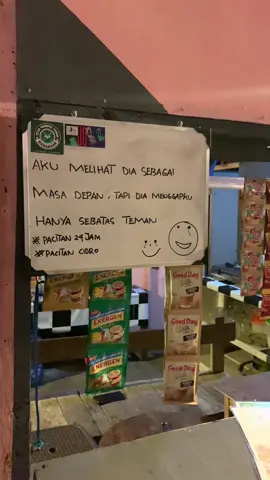 AKU MELIHAT DIA SEBAGAI
MASA DEPAN, TAPI DIA MENGGAPKU
HANYA SEBATAS TEMAN
* PACITAN 24 JAM
* PACITAN CIDRO
ENERGEN
ENERGEN
ENERGEN
ENERGEN
Good Day
Good Day
Good Day